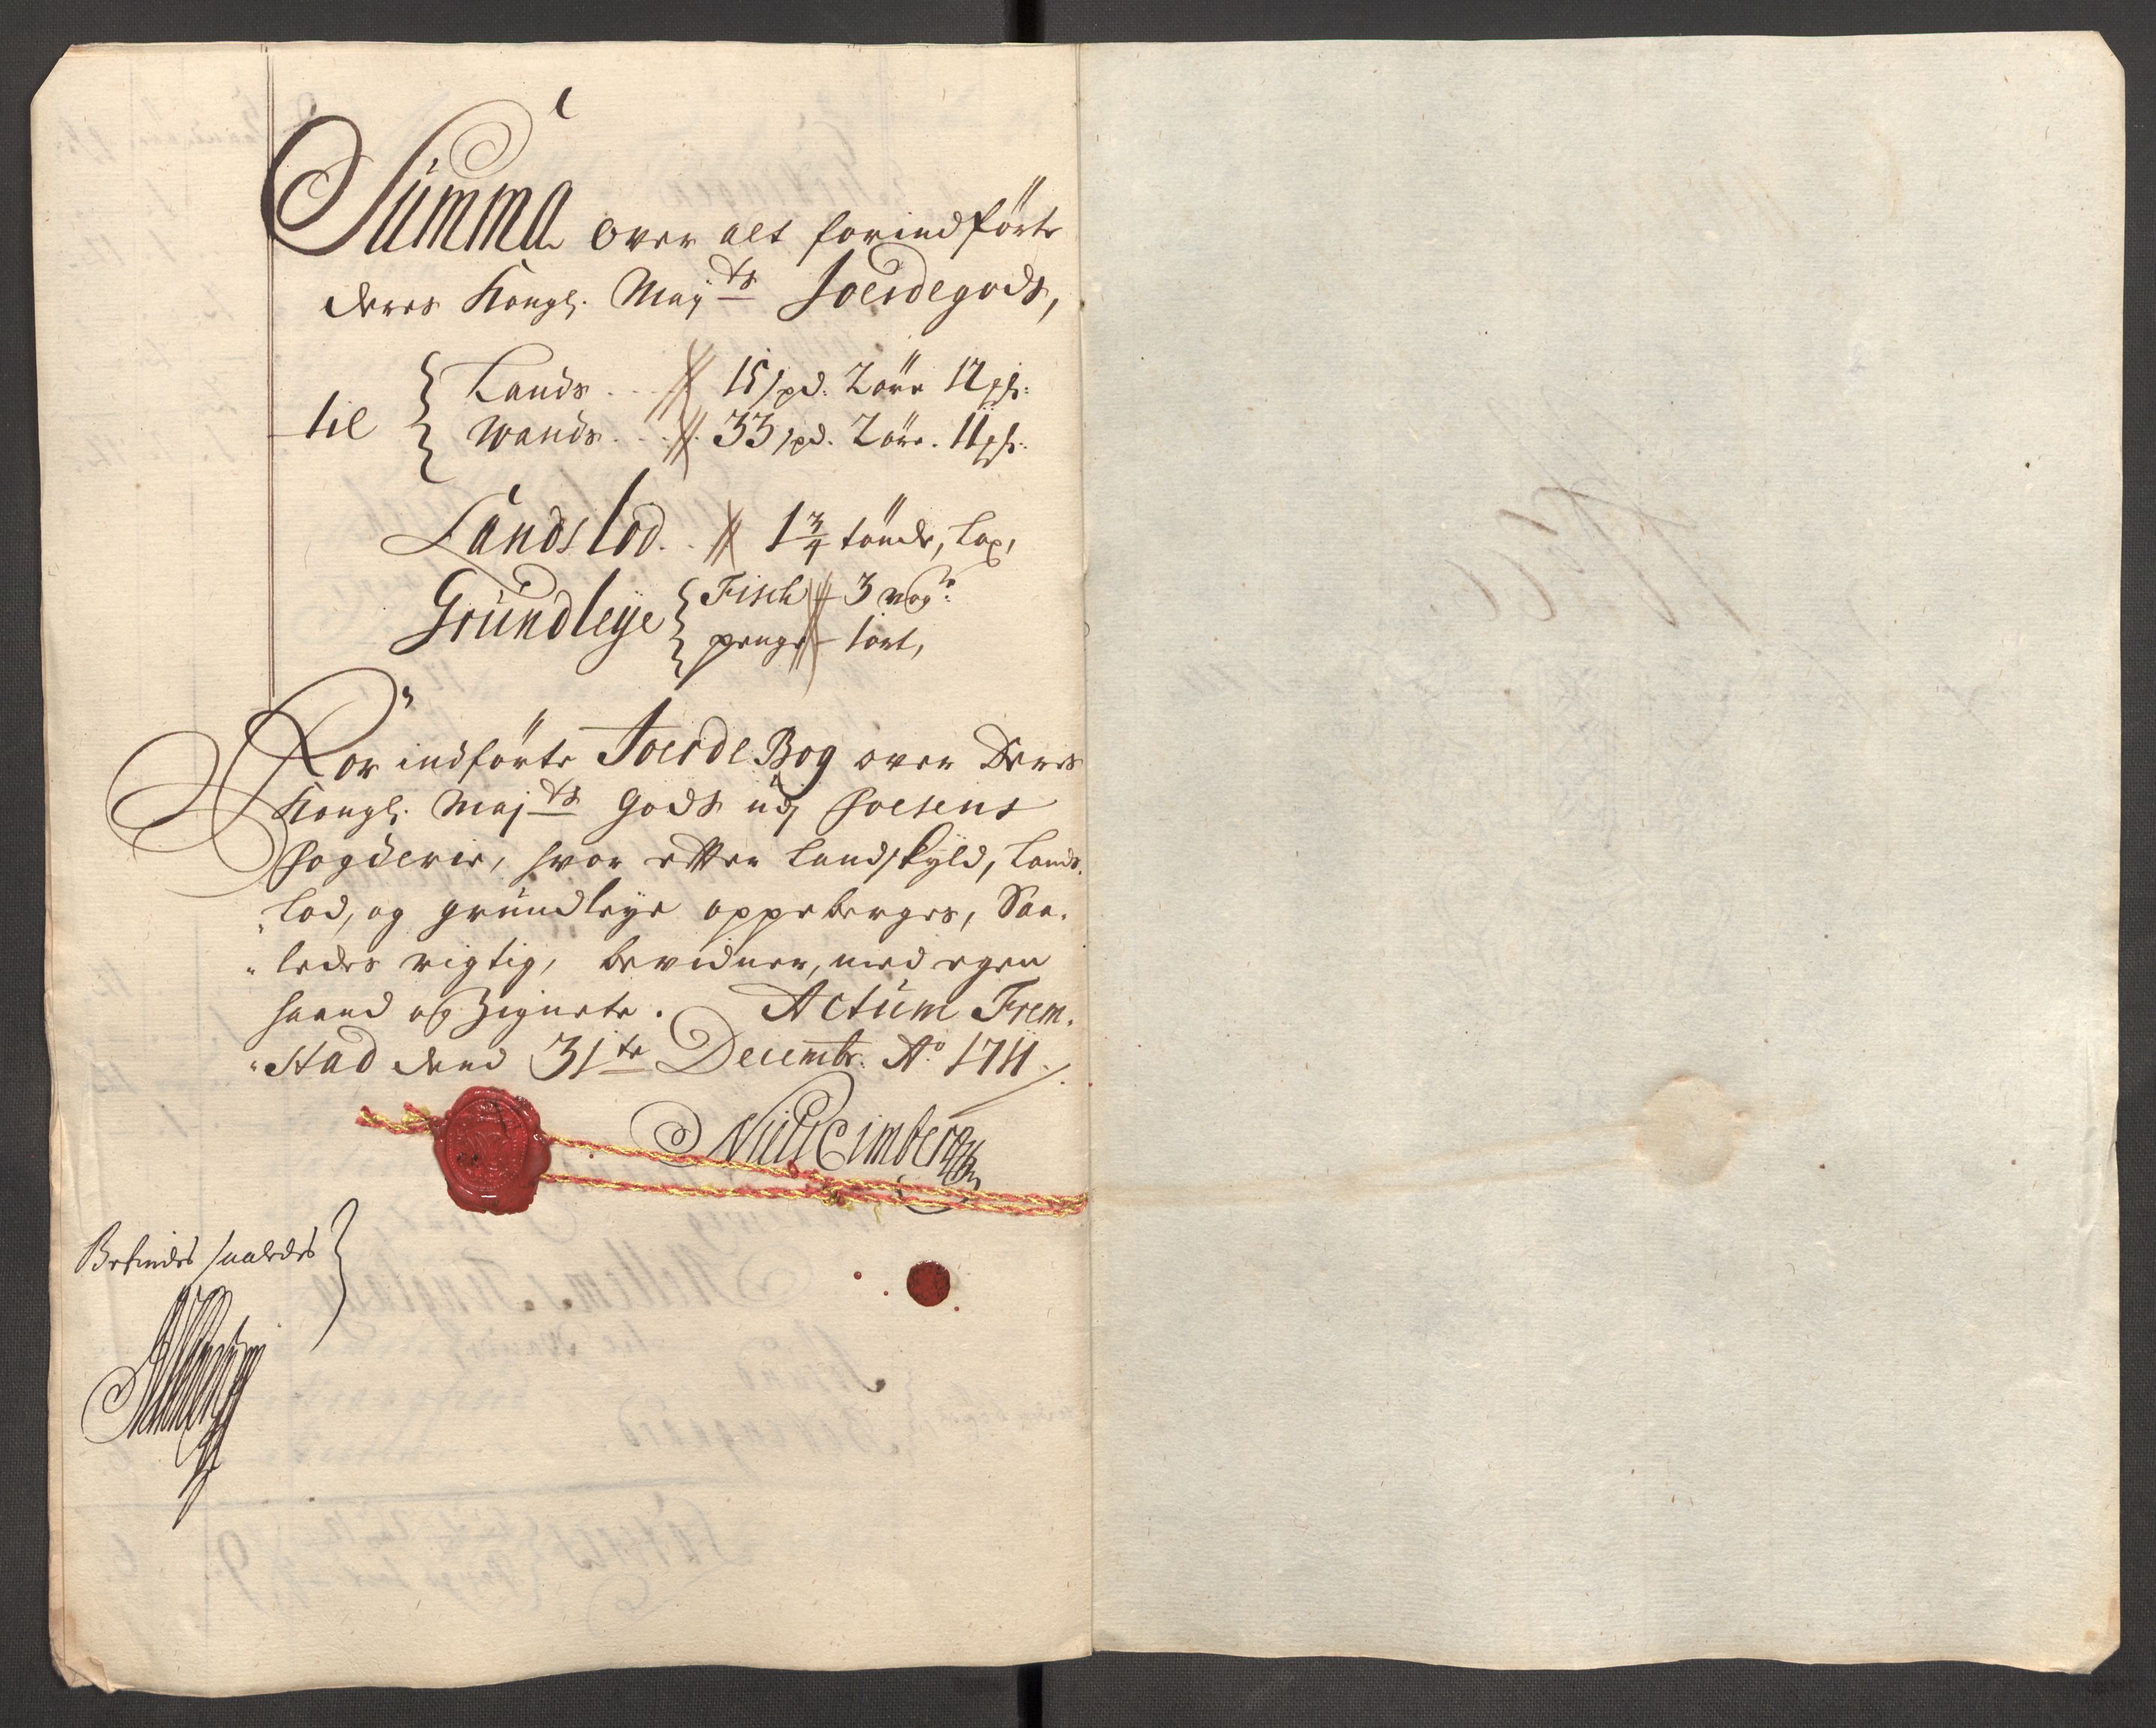 Summa over alt forindførte
deres Kongl. Maÿts Joerdegods,
til { Lands . . 15 spd. 2 øre 12 ps:
Wands . . . 33 spd. 2 øre. 11 ps:
Landslod . . 1 3/4 tønde, Lax,
Grundleÿe { Fisch - 3 wog:
penge - 1 ort,
For indførte Joerde Bog over Deres
Kongl. Maj:ts Gods udj Foesens
fogderie, hvor efter Landskÿld, Lands-
"lod, og grundleÿe oppeberges, Saa-
"ledes rigtig, bevidner, med egen
haand og Zignete. Actum Frem-
"stad dend 31te Decembr. Ao 1711
Befindes saaledes }